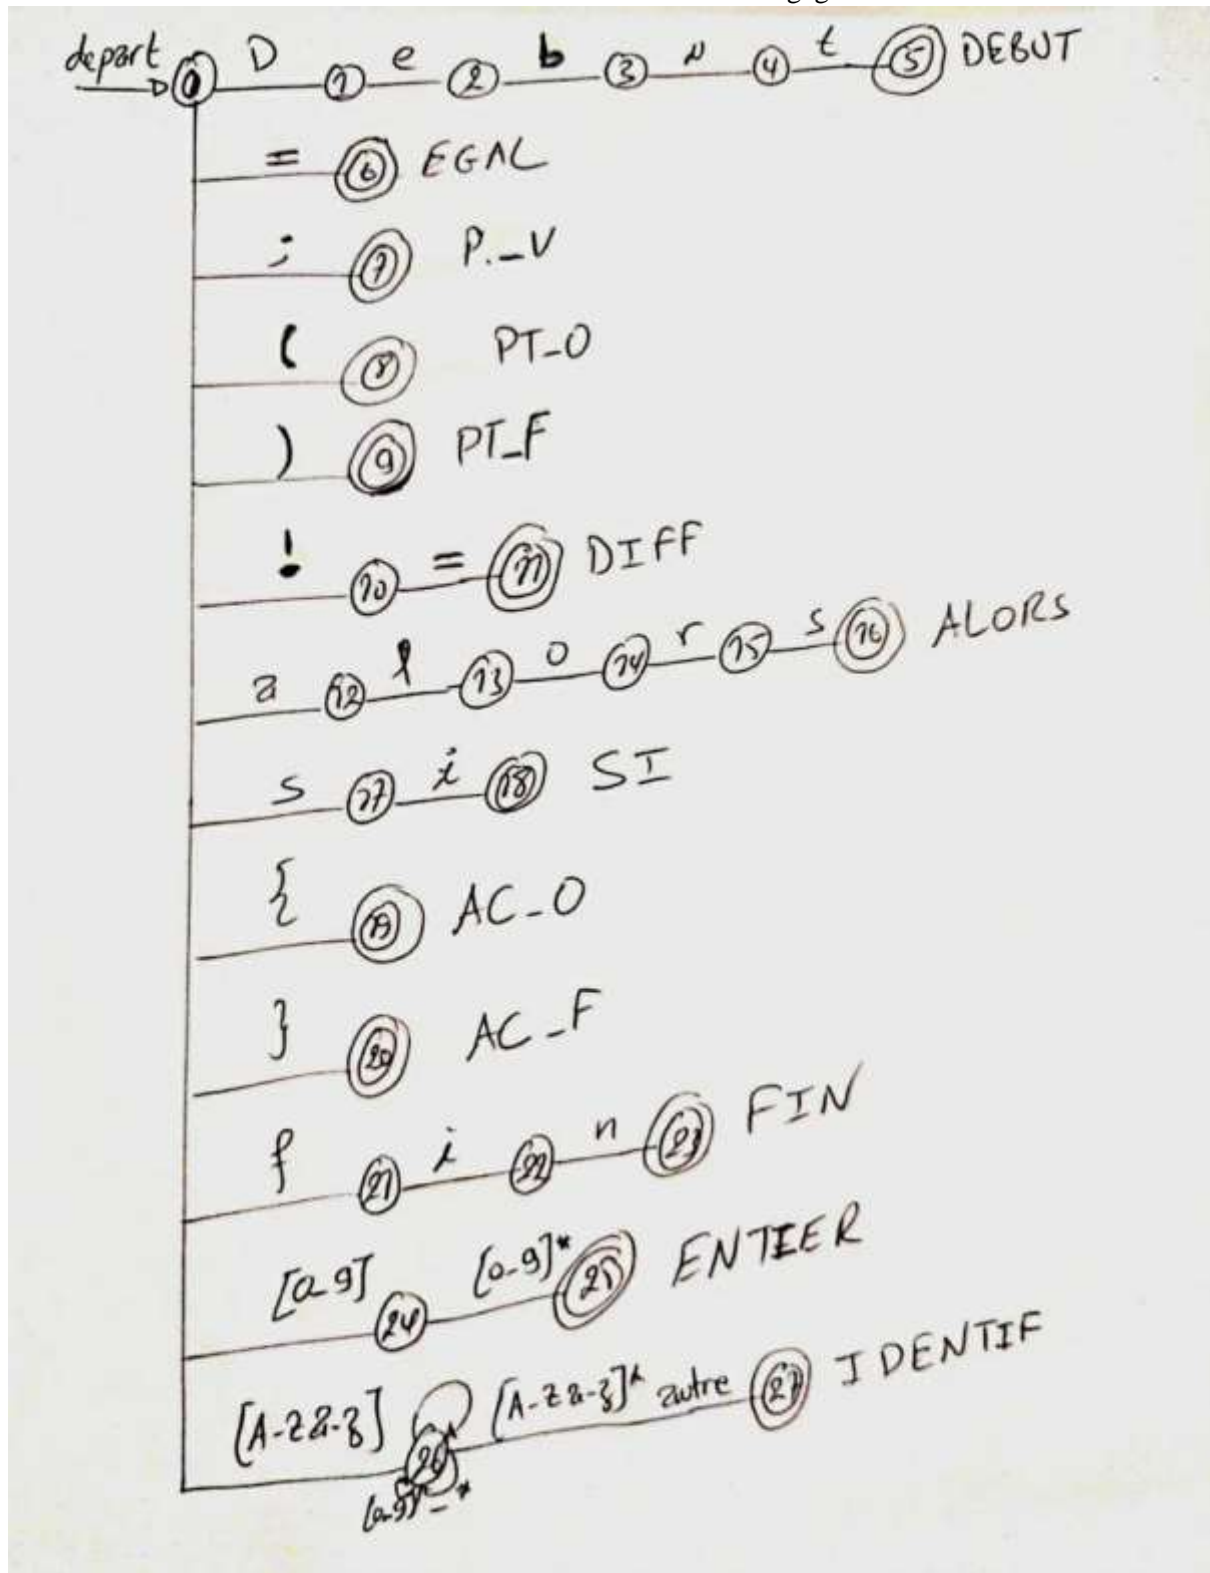 depart D e b u t DEBUT
0 1 2 3 4 5
= 6 EGAL
; 7 P._V
( 8 PT_O
) 9 PT_F
! 10 = 11 DIFF
a 12 l 13 o 14 r 15 s 16 ALORS
s 17 i 18 SI
{ 19 AC_O
} 20 AC_F
f 21 i 22 n 23 FIN
[0-9] 24 [0-9]* 25 ENTIER
[A-Za-z] 26 [A-Za-z]* autre 27 IDENTIF
[0-9] _ *